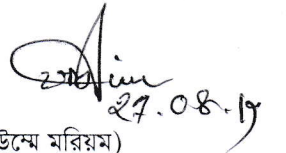 27.08.19
উম্মে মরিয়ম)